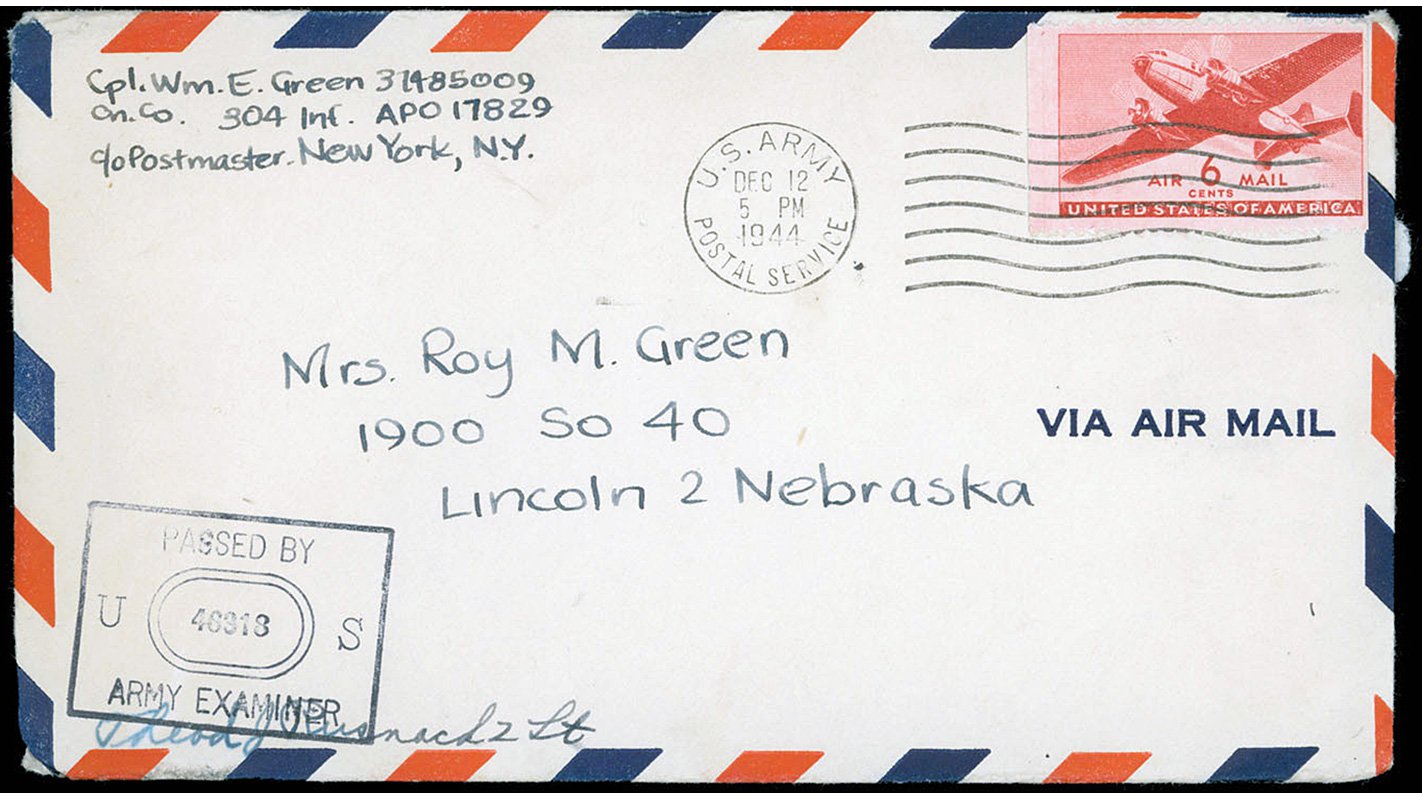 Cpl. Wm. E. Green 31485009
Cn. Co. 304 Inf. APO 17829
c/o Postmaster. New York, N.Y.
U.S. ARMY
DEC 12
5 PM
1944
POSTAL SERVICE
AIR 6 MAIL
CENTS
UNITED STATES OF AMERICA
Mrs. Roy M. Green
1900 So 40
Lincoln 2 Nebraska
VIA AIR MAIL
PASSED BY
U 46318 S
ARMY EXAMINER
2 Lt